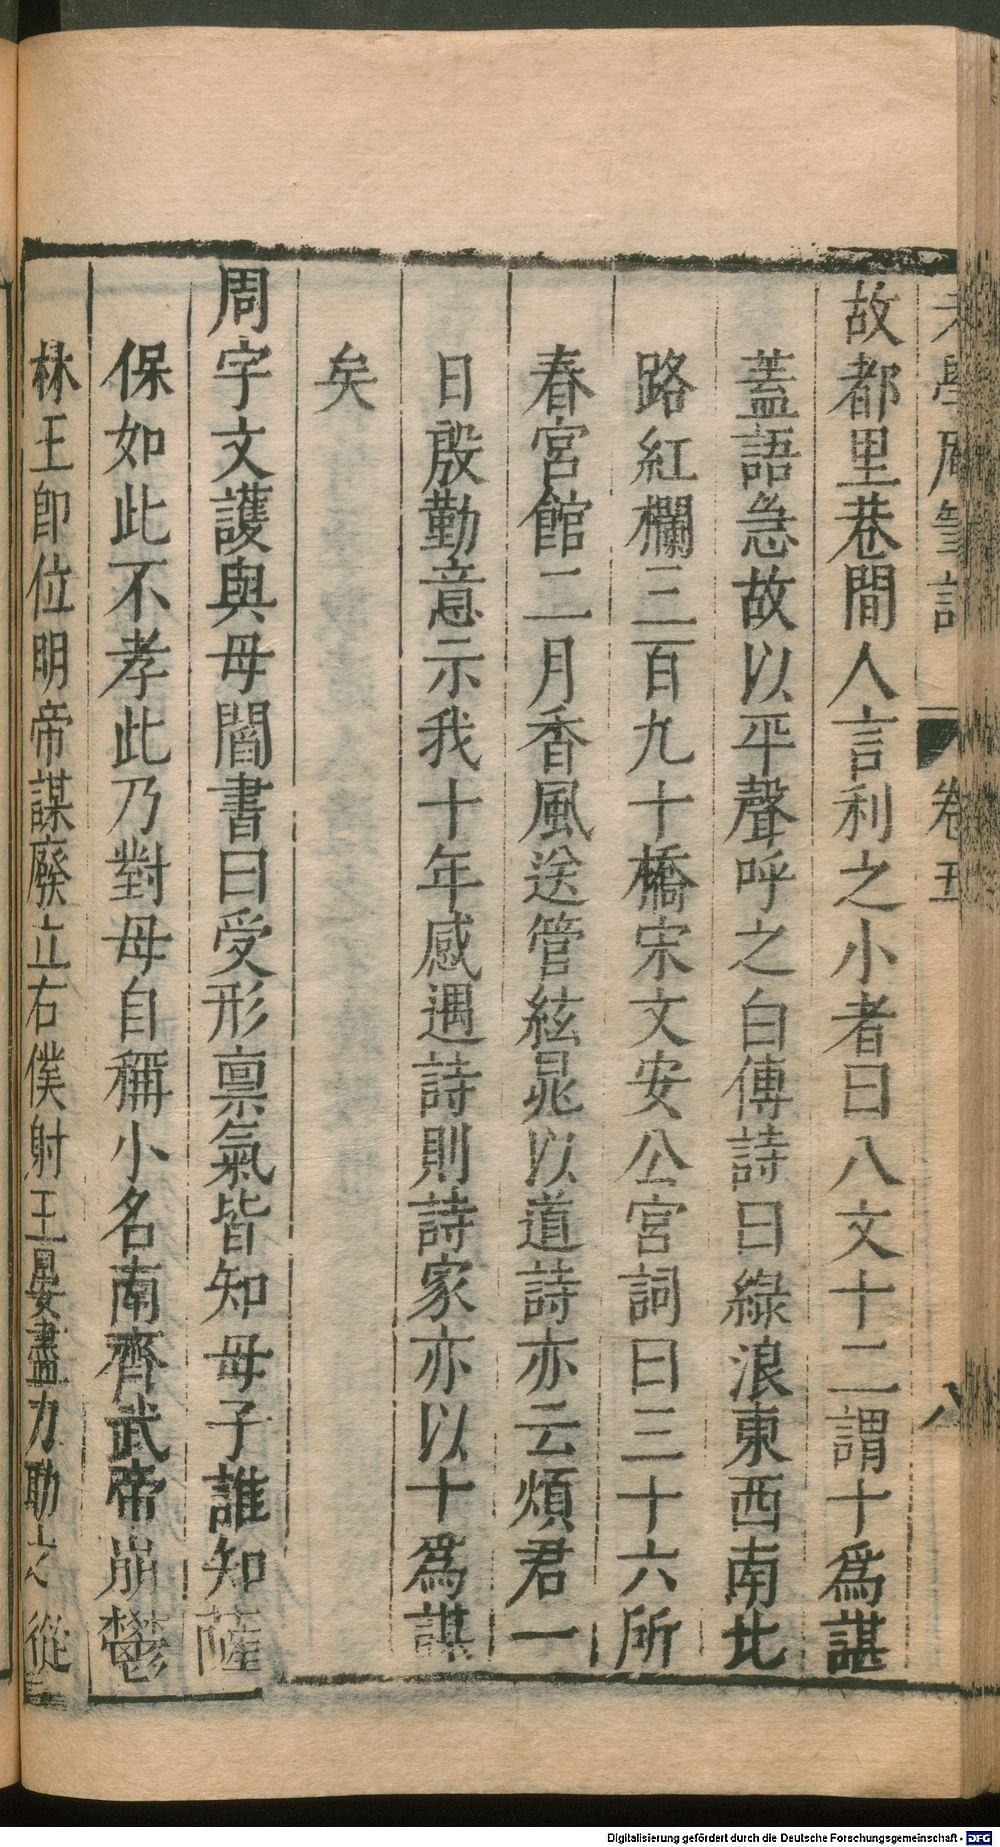 老學庵筆記 卷五 八
故都里巷間人言利之小者曰八文十二謂十爲諶
蓋語急故以平聲呼之白傅詩曰綠浪東西南北
路紅欄三百九十橋宋文安公宮詞曰三十六所
春宮館二月香風送管絃晁以道詩亦云煩君一
日殷勤意示我十年感遇詩則詩家亦以十爲諶
矣
周宇文護與母閻書曰受形禀氣皆知母子誰知薩
保如此不孝此乃對母自稱小名南齊武帝崩鬱
林王卽位明帝謀廢立右僕射王晏盡力助之從
Digitalisierung gefördert durch die Deutsche Forschungsgemeinschaft - DFG